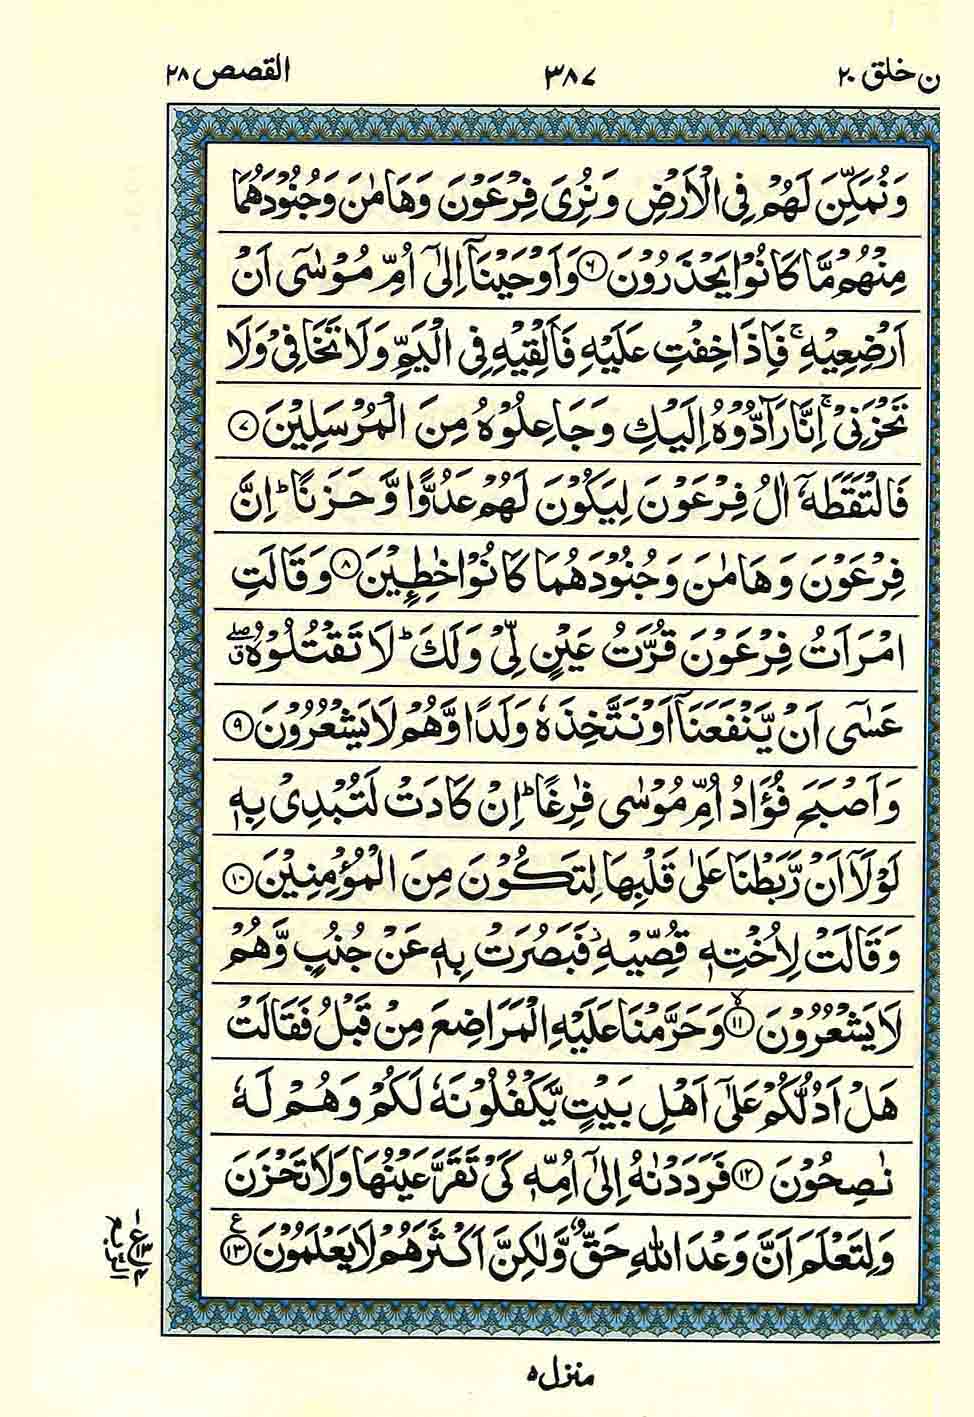 ن خلق ۲۰ ۳۸۷ القصص ۲۸
وَنُمَكِّنَ لَهُمْ فِي الْاَرْضِ وَنُرِیَ فِرْعَوْنَ وَهَامٰنَ وَجُنُوْدَهُمَا
مِنْهُمْ مَّا كَانُوْا يَحْذَرُوْنَ ۶ وَاَوْحَيْنَاۤ اِلٰۤى اُمِّ مُوْسٰۤى اَنْ
اَرْضِعِيْهِ ۚ فَاِذَا خِفْتِ عَلَيْهِ فَاَلْقِيْهِ فِى الْيَمِّ وَلَا تَخَافِىْ وَلَا
تَحْزَنِىْ ۚ اِنَّا رَآدُّوْهُ اِلَيْكِ وَجَاعِلُوْهُ مِنَ الْمُرْسَلِيْنَ ۷
فَالْتَقَطَهٗۤ اٰلُ فِرْعَوْنَ لِيَكُوْنَ لَهُمْ عَدُوًّا وَّحَزَنًا ؕ اِنَّ
فِرْعَوْنَ وَهَامٰنَ وَجُنُوْدَهُمَا كَانُوْا خٰطِـِٕيْنَ ۸ وَقَالَتِ
امْرَاَتُ فِرْعَوْنَ قُرَّتُ عَيْنٍ لِّىْ وَلَكَ ؕ لَا تَقْتُلُوْهُ ۖق
عَسٰۤى اَنْ يَّنْفَعَنَاۤ اَوْ نَتَّخِذَهٗ وَلَدًا وَّهُمْ لَا يَشْعُرُوْنَ ۹
وَاَصْبَحَ فُؤَادُ اُمِّ مُوْسٰى فٰرِغًا ؕ اِنْ كَادَتْ لَتُبْدِىْ بِهٖ
لَوْلَاۤ اَنْ رَّبَطْنَا عَلٰى قَلْبِهَا لِتَكُوْنَ مِنَ الْمُؤْمِنِيْنَ ۱۰
وَقَالَتْ لِاُخْتِهٖ قُصِّيْهِ ۫ فَبَصُرَتْ بِهٖ عَنْ جُنُبٍ وَّهُمْ
لَا يَشْعُرُوْنَ ۙ۱۱ وَحَرَّمْنَا عَلَيْهِ الْمَرَاضِعَ مِنْ قَبْلُ فَقَالَتْ
هَلْ اَدُلُّكُمْ عَلٰۤى اَهْلِ بَيْتٍ يَّكْفُلُوْنَهٗ لَكُمْ وَهُمْ لَهٗ
نٰصِحُوْنَ ۱۲ فَرَدَدْنٰهُ اِلٰۤى اُمِّهٖ كَىْ تَقَرَّ عَيْنُهَا وَلَا تَحْزَنَ
وَلِتَعْلَمَ اَنَّ وَعْدَ اللّٰهِ حَقٌّ وَّلٰكِنَّ اَكْثَرَهُمْ لَا يَعْلَمُوْنَ ۱۳ ع
منزل ۵